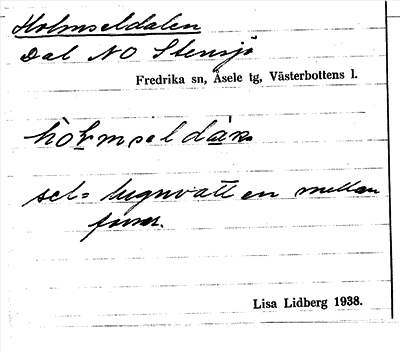 Holmseldalen
Dal NO Stensjö
Fredrika sn, Åsele tg, Västerbottens l.
sel= lugnvatten mellan
Lisa Lidberg 1938.